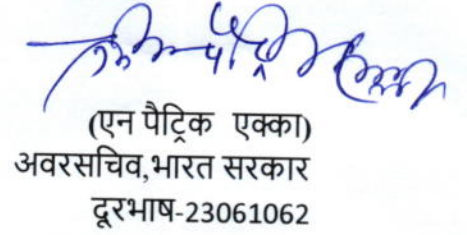 (एन पैट्रिक एक्का)
अवरसचिव,भारत सरकार
दूरभाष-23061062